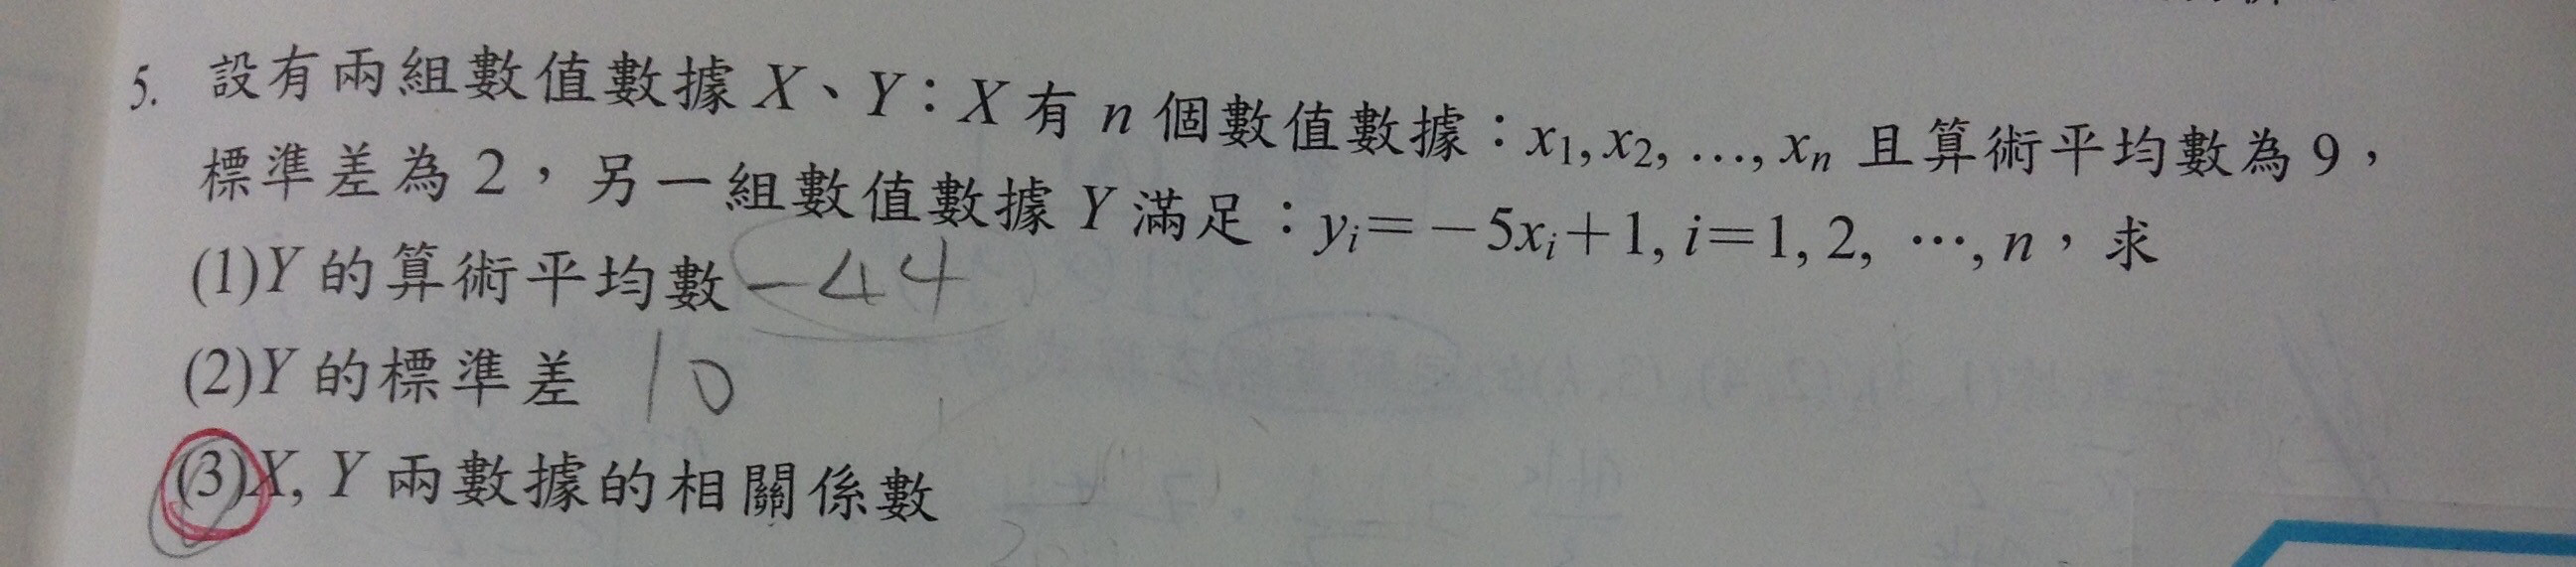 5. 設有兩組數值數據 X、Y：X 有 n 個數值數據：x₁, x₂, …, xₙ 且算術平均數為 9，
標準差為 2，另一組數值數據 Y 滿足：yᵢ＝－5xᵢ＋1, i＝1, 2, …, n，求
(1)Y 的算術平均數 －44
(2)Y 的標準差 10
(3)X, Y 兩數據的相關係數